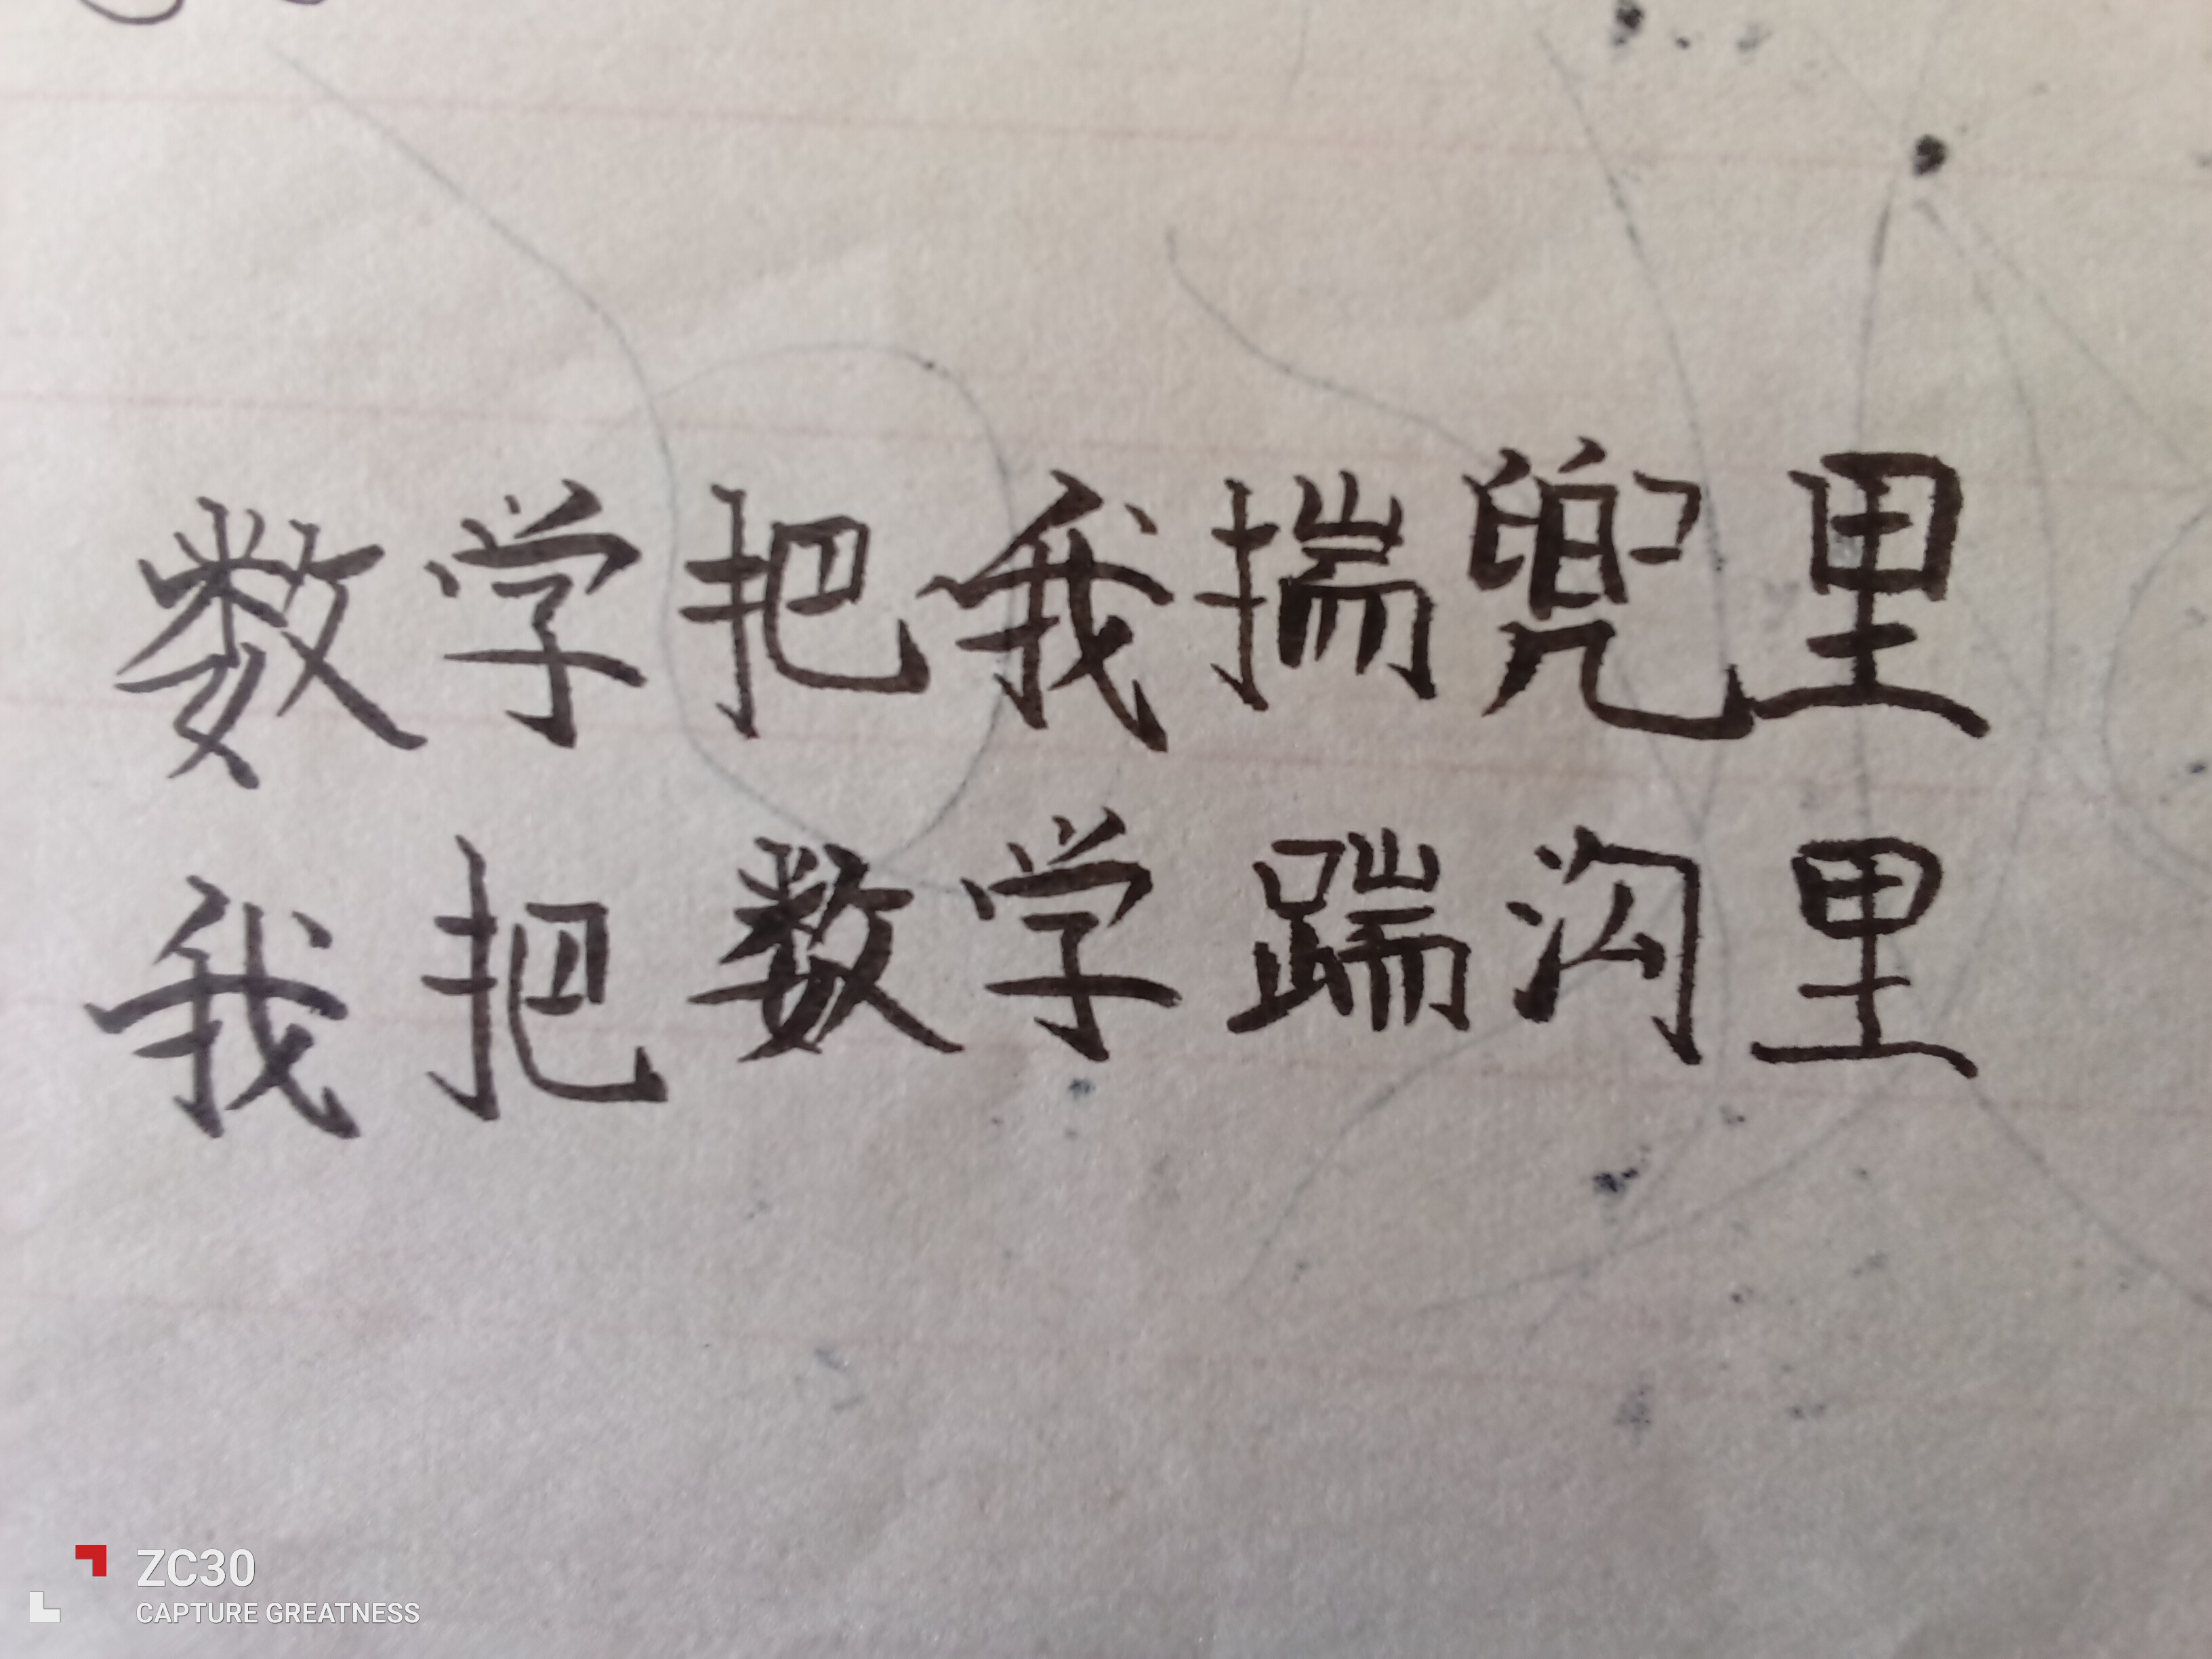 数学把我揣兜里
我把数学踹沟里
ZC30
CAPTURE GREATNESS